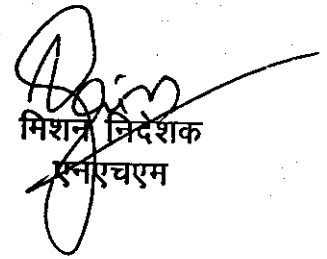 मिशन निदेशक
एनएचएम